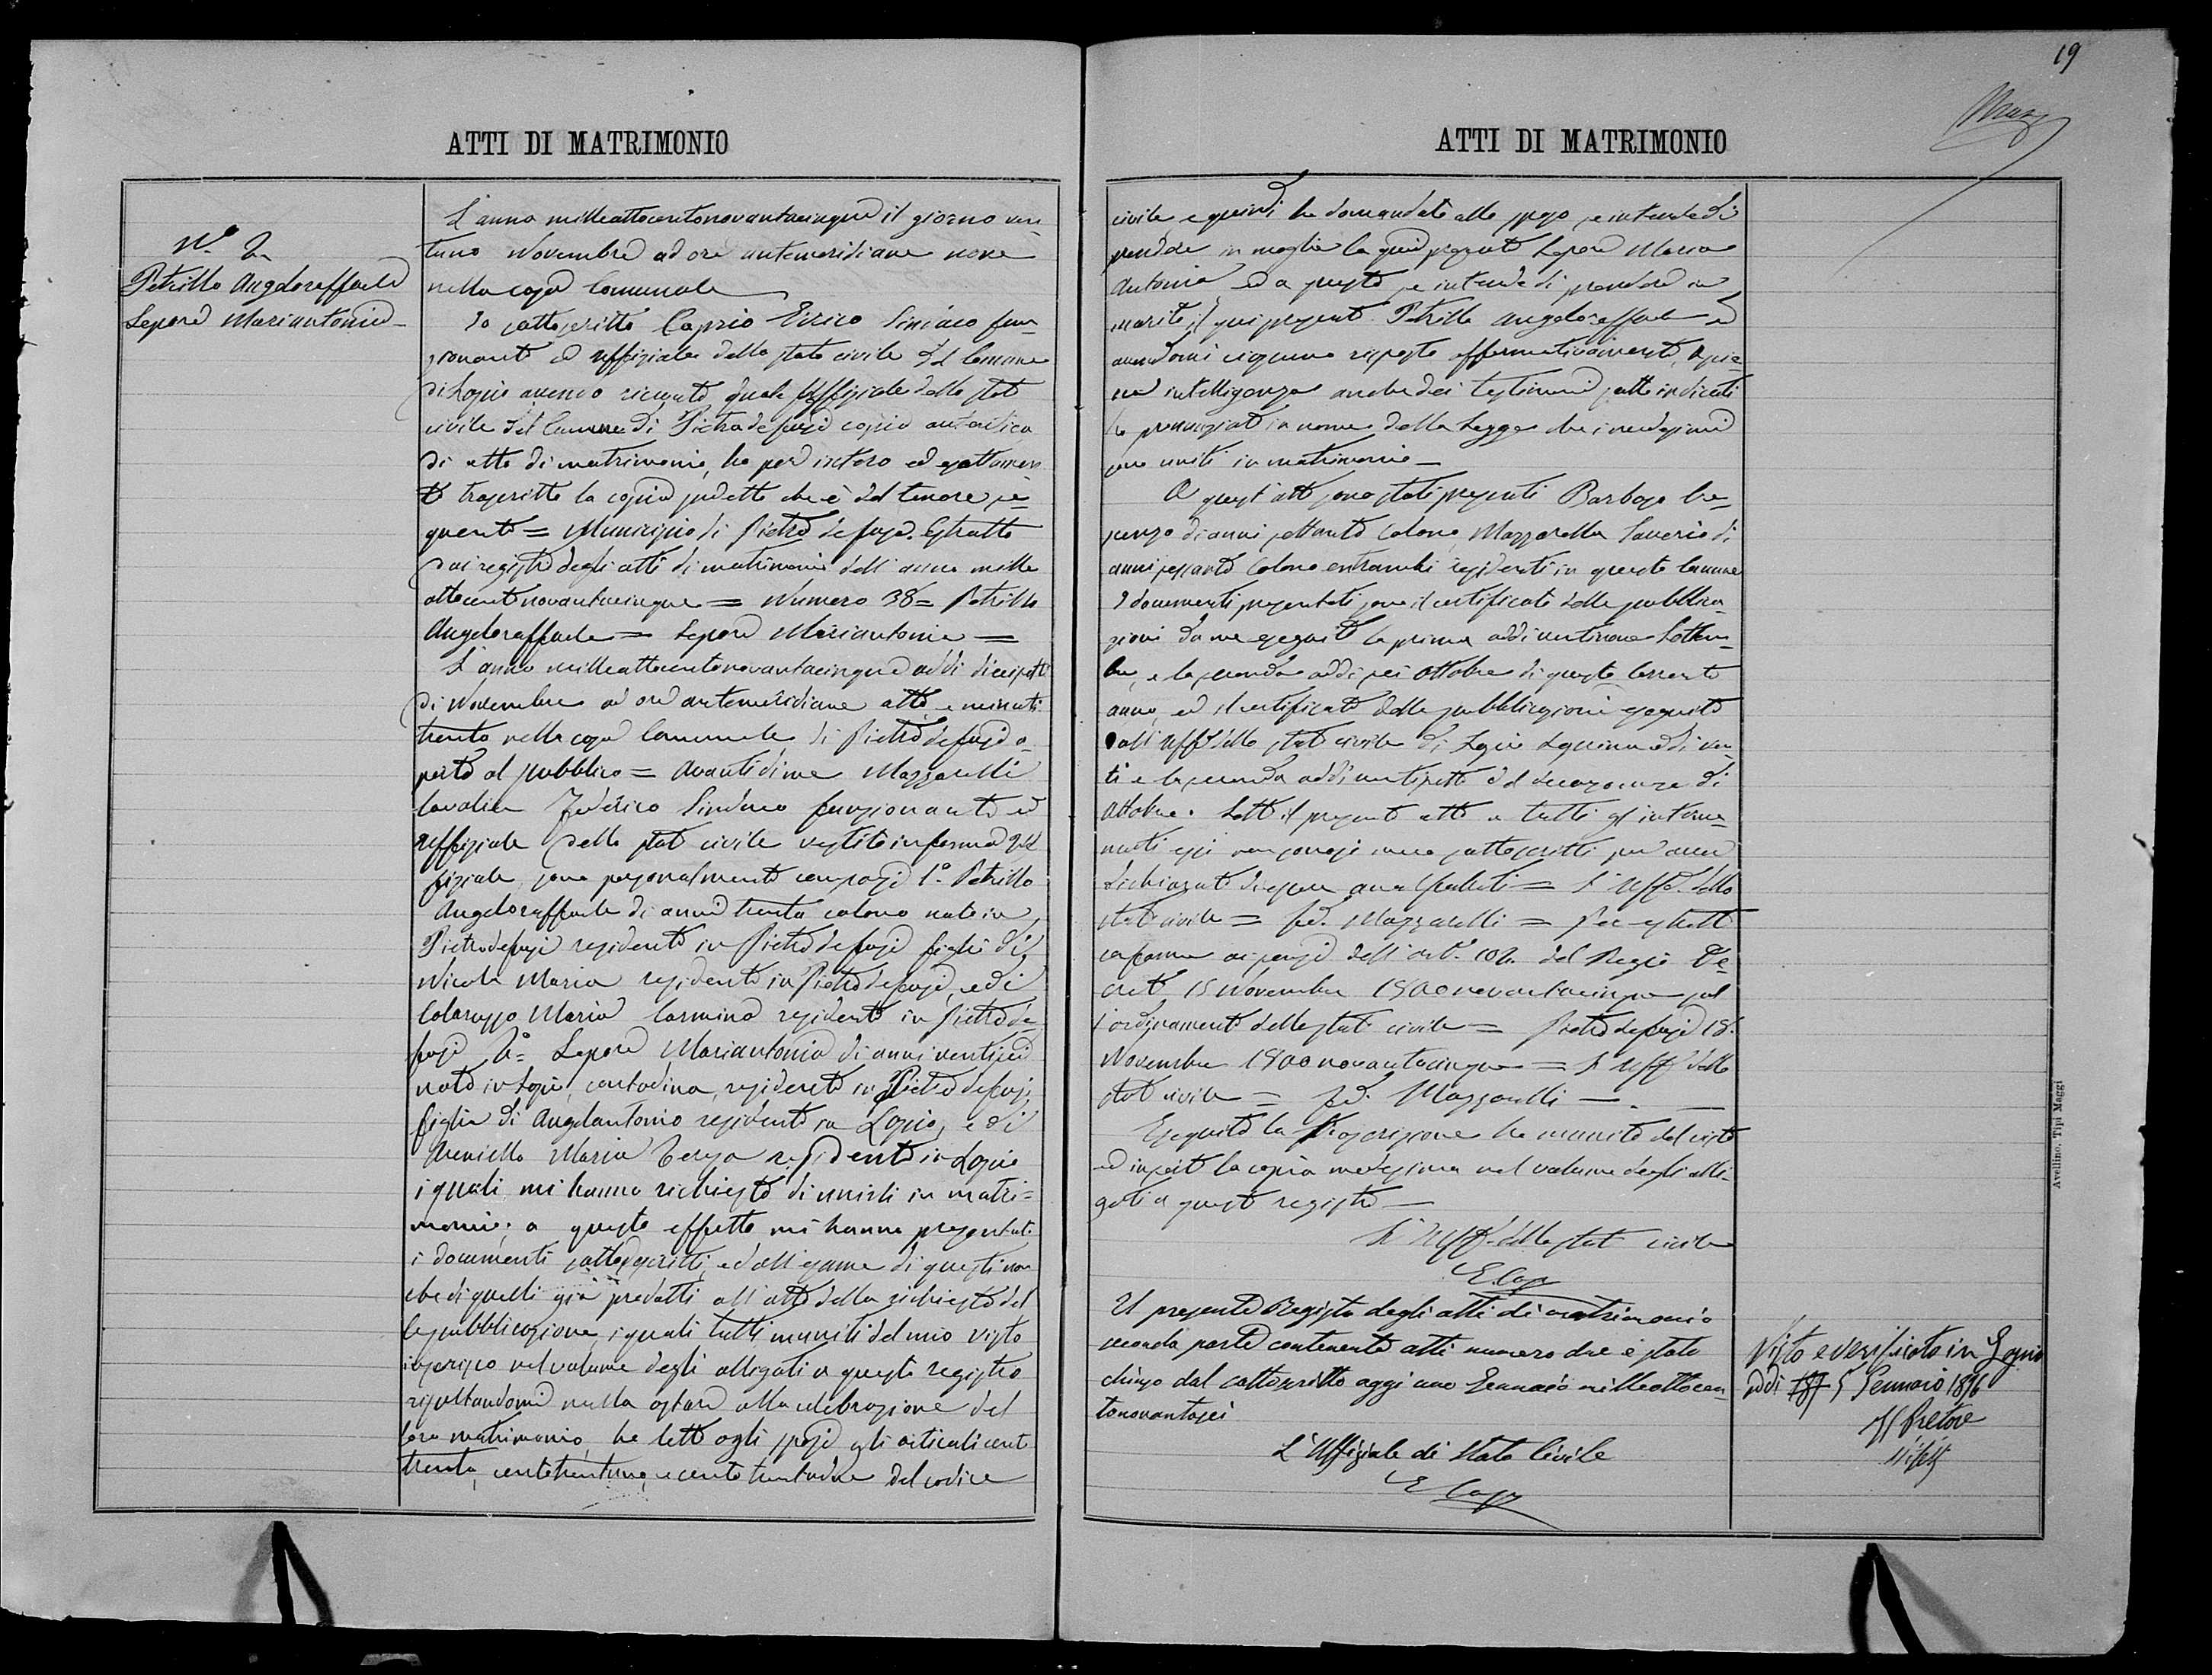 19
ATTI DI MATRIMONIO
N.° 2
Petrillo Angeloraffaele
Lepore Mariantonia
L'anno milleottocentonovantacinque il giorno ven
tuno Novembre ad ore antemeridiane nove
nella casa Comunale
Io sottoscritto Caprio Errico Sindaco fun
zionante ed uffiziale dello stato civile del Comune
di Lapio avendo ricevuto quale Uffiziale dello stato
civile del Comune di Pietradefusi copia autentica
di atto di matrimonio, ho per intero ed esattamen
te trascritto la copia sudetta che è del tenore se=
guente = Municipio di Pietradefusi. Estratto
dai registri degli atti di matrimonio dell'anno mille
ottocentonovantacinque = Numero 38 = Petrillo
Angeloraffaele = Lepore Mariantonia =
L'anno milleottocentonovantacinque addì diciisette
di Novembre ad ore antemeridiane otto e minuti
trenta nella casa Comunale di Pietradefusi a=
perta al pubblico = Avanti di me Mazzarelli
Cavalier Federico Sindaco funzionante ed
uffiziale dello stato civile vestito in forma uf
fiziale, sono personalmente comparsi 1° Petrillo
Angeloraffaele di anni trenta colono nato in
Pietradefusi residente in Pietradefusi figlio di
Nicola Maria residente in Pietradefusi, e di
Colarusso Maria Carmina residente in Pietrade=
fusi 2° = Lepore Mariantonia di anni ventisei
nata in Lapio, contadina, residente in Pietradefusi,
figlia di Angelantonio residente in Lapio, e di
Maria Teresa residente in Lapio
i quali mi hanno richiesto di unirli in matri=
monio; a questo effetto mi hanno presentati
i documenti sottodescritti, ed all'esame di questi non
che di quelli già prodotti all'atto della richiesta del
le pubblicazione, i quali tutti muniti del mio visto
inserisco nel volume degli allegati a questo registro
risultandomi nulla ostare alla celebrazione del
loro matrimonio, ho letto agli sposi gli articoli cento
trenta, centotrentuno, e cento trentadue del codice
ATTI DI MATRIMONIO
civile e quindi ho domandato allo sposo se intende di
prendere in moglie la qui presente Lepore Maria
Antonia ed a questa se intende di prendere in
marito il qui presente Petrillo Angeloraffaele ed
avendomi ciascuno risposto affermativamente, a pie=
na intelligenza anche dei testimoni sotto indicati
ho pronunziato in nome della Legge che i medesimi
sono uniti in matrimonio —
A quest'atto sono stati presenti Barbaso Cre=
scenzo di anni settanta Colono, Mazzarella Saverio di
anni sessanta Colono entrambi residenti in questo Comune
I documenti presentati sono il certificato delle pubblica=
zioni da me eseguite la prima addì ventinove Settem=
bre, e la seconda addì sei Ottobre di questo corrente
anno, ed il certificato delle pubblicazioni eseguite
dall'Uff. dello stato civile di Lapio la prima addì ven=
ti e la seconda addì ventisette del mese di
Ottobre. Letto il presente atto a tutti gl'interve=
nuti essi non sonosi meco sottoscritti per aver
dichiarato di essere analfabeti = L'Uff. dello
stato civile = fed. Mazzarelli = Per estratto
conforme ai sensi dell'art. 102 del Regio De=
creto 15 Novembre sul
l'ordinamento dello stato civile = Pietradefusi 18
Novembre 1800novantacinque = L'Uff. dello
stato civile = fed. Mazzarelli —
Eseguita la trascrizione ho munito del visto
ed inserito la copia medesima nel volume degli alle=
gati a questo registro —
L'Uff. dello stato civile
E. Capr
Il presente Registro degli atti di matrimonio
seconda parte contenente atti numero due è stato
chiuso dal sottoscritto oggi uno Gennaio milleottocen
tonovantasei
L'Uffiziale di Stato Civile
E. Capr
Visto e verificato in Lapio
addì 5 Gennaio 1896
Il Pretore
Avellino, Tip. Maggi